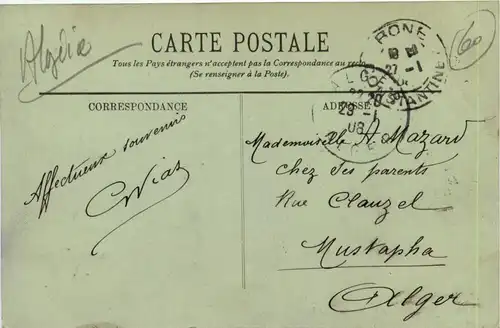 Algéria
60
CARTE POSTALE
Tous les Pays étrangers n'acceptent pas la Correspondance au recto
(Se renseigner à la Poste).
BONE
27-1
CONSTANTINE
ALGER
29-1
08
CORRESPONDANCE
ADRESSE
Affectueux souvenirs
Mademoiselle H. Mazard
chez ses parents
Rue Clauzel
Mustapha
Alger